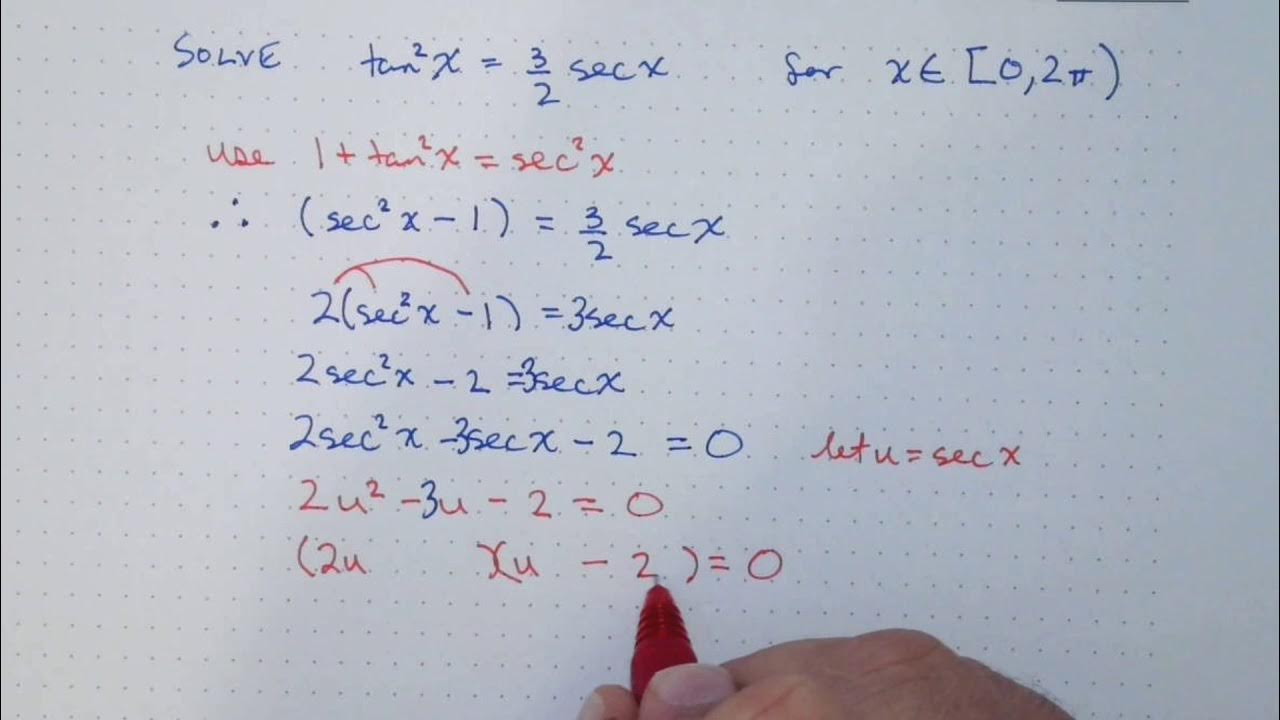 SOLVE tan²x = 3/2 sec x for x ∈ [0, 2π)
use 1 + tan²x = sec²x
∴ (sec²x − 1) = 3/2 sec x
2(sec²x − 1) = 3sec x
2sec²x − 2 = 3sec x
2sec²x − 3sec x − 2 = 0 let u = sec x
2u² − 3u − 2 = 0
(2u )(u − 2) = 0